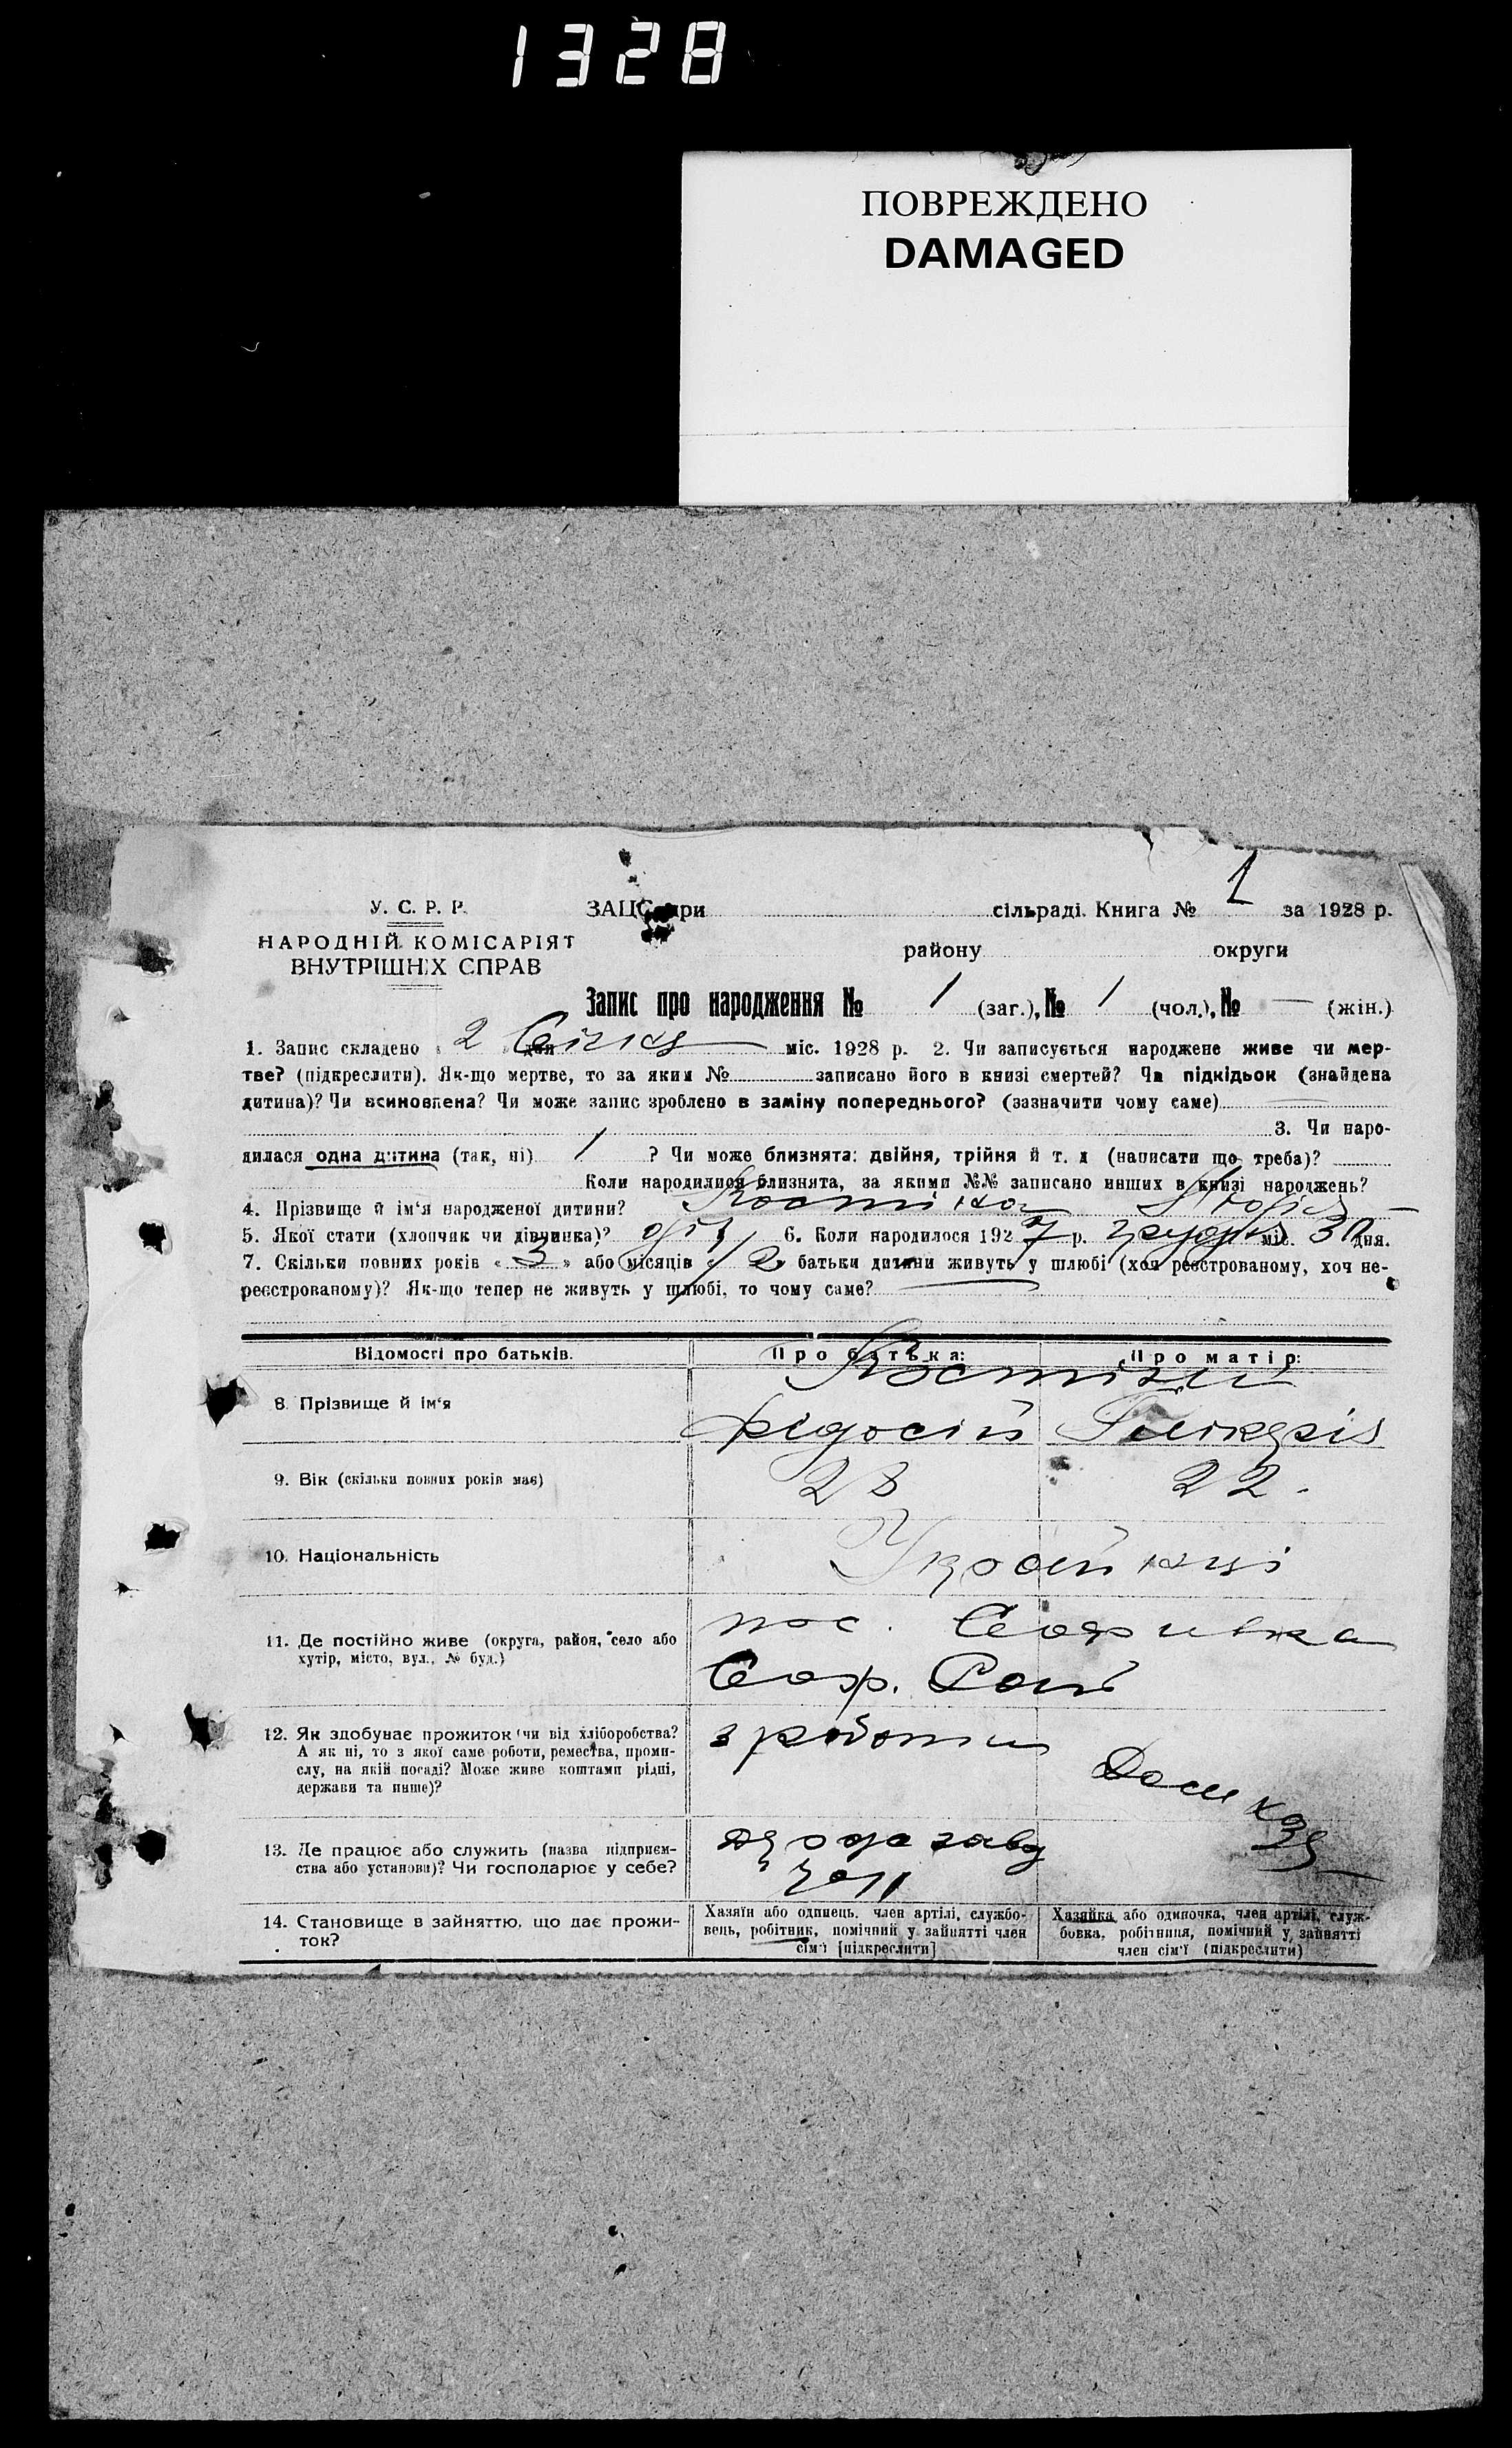 1328
ПОВРЕЖДЕНО
DAMAGED
У. С. Р. Р.
НАРОДНІЙ КОМІСАРІЯТ
ВНУТРІШНІХ СПРАВ
ЗАЦС при сільраді. Книга № 1 за 1928 р.
району округи
Запис про народження № 1 (заг.), № 1 (чол.), № — (жін.)
1. Запис складено « 2 » дня Січня міс. 1928 р. 2. Чи записується народжене живе чи мер-
тве? (підкреслити). Як-що мертве, то за яким № записано його в книзі смертей? Чи підкідьок (знайдена
дитина)? Чи всиновлена? Чи може запис зроблено в заміну попереднього? (зазначити чому саме)
3. Чи наро-
дилася одна дитина (так, ні) 1 ? Чи може близнята: двійня, трійня й т. д (написати що треба)?
Коли народилися близнята, за якими №№ записано инших в книзі народжень?
4. Прізвище й ім'я народженої дитини?
5. Якої стати (хлопчик чи дівчинка)? 6. Коли народилося 1927 р. грудня міс. 30 дня.
7. Скільки повних років « 3 » або місяців « 2 батьки дитини живуть у шлюбі (хоч реєстрованому, хоч не-
реєстрованому)? Як-що тепер не живуть у шлюбі, то чому саме?
Відомості про батьків. Про батька: Про матір:
8. Прізвище й ім'я
Глікерія
9. Вік (скільки повних років має) 28 22.
10. Національність Українці
11. Де постійно живе (округа, район, село або
хутір, місто, вул., № буд.)
пос. Софивка
Соф. Рай
12. Як здобуває прожиток (чи від хліборобства?
А як ні, то з якої саме роботи, ремества, проми-
слу, на якій посаді? Може живе коштами рідні,
держави та инше)?
з роботи
13. Де працює або служить (назва підприєм-
ства або установи)? Чи господарює у себе?
14. Становище в зайняттю, що дає прожи-
ток?
Хазяїн або одинець, член артілі, службо-
вець, робітник, помічний у зайнятті член
сім'ї [підкреслити]
Хазяйка або одиночка, член артілі, служ-
бовка, робітниця, помічний у зайнятті
член сім'ї (підкреслити)